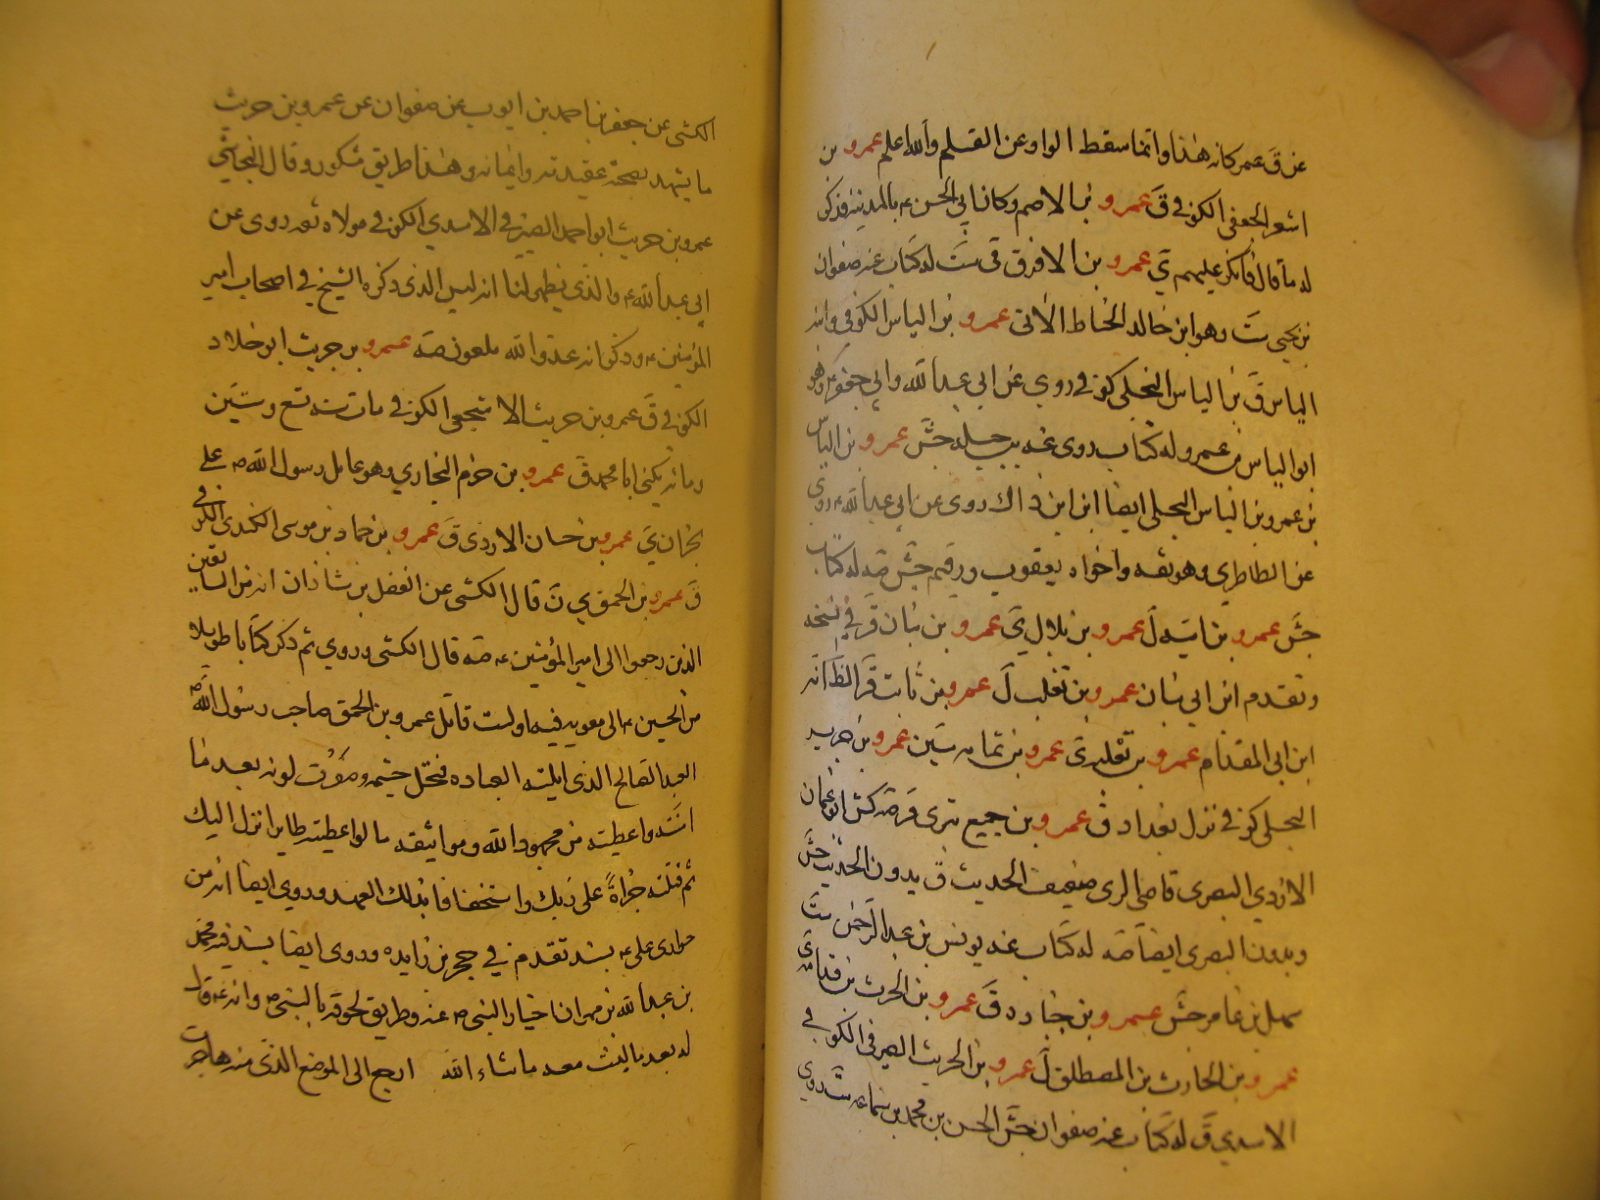 عن ق عمر كانه هذا وانما سقط الواو عن القلم والله اعلم عمرو بن
اشعر الجعفي الكوفي ق عمرو بن الاصم وكان ابي الحسن ع بالمدينة فذكر
له ما قال فانكر عليهم ي عمرو بن الافرق ق ست له كتاب عنه صفوان
بن يحيى ست وهو ابن خالد الحناط الاتي عمرو بن الياس الكوفي وابنه
الياس ق بن الياس البجلي كوفي روى عن ابي عبد الله وابي جعفر ع وهو
ابو الياس بن عمرو له كتاب روى عنه ابن جبلة جش عمرو بن الياس
بن عمرو بن الياس البجلي ايضا ابن ابن ذاك روى عن ابي عبد الله ع روى
عن الطاطري وهو ثقة واخواه يعقوب ورقيم جش صه له كتاب
جش عمرو بن امية ل عمرو بن بلال ي عمرو بن بنان ق في نسخة
وتقدم ابن ابي بنان عمرو بن تغلب ل عمرو بن ثابت قر الظ انه
ابن ابي المقدام عمرو بن ثعلبة ي عمرو بن ثمامه سين عمرو بن جرير
البجلي كوفي نزل بغداد ق عمرو بن جميع بتري قر صه كش ابو عثمان
الازدي البصري قاضي الري ضعيف الحديث ق بدون الحديث جش
وبدون البصري ايضا صه له كتاب عنه يونس بن عبد الرحمن ست
سهل بن عامر جش عمرو بن جناده ق عمرو بن الحرث بن قدامة ي
عمرو بن الحارث بن المصطلق ل عمرو بن الحريث الصيرفي الكوفي
الاسدي ق له كتاب عنه صفوان جش الحسن بن محمد بن سماعه ست روى
الكشي عن جعفر بن احمد بن ايوب عن صفوان عن عمرو بن حريث
ما يشهد بصحة عقيدته وايمانه وهذا طريق مشكور وقال النجاشي
عمرو بن حريث ابو احمد الصيرفي الاسدي الكوفي مولاه ثقه روى عن
ابي عبد الله ع والذي يظهر لنا انه ليس الذي ذكره الشيخ في اصحاب امير
المؤمنين ع وذكر انه عدو الله ملعون صه عمرو بن حريث ابو خلاد
الكوفي ق عمرو بن حريث الاشجعي الكوفي مات سنه تسع وستين
ومائه يكنى ابا محمد ق عمرو بن حزم النجاري وهو عامل رسول الله ص على
نجران ي عمرو بن حسان الازدي ق عمرو بن حماد بن موسى الكندي الكوفي
ق عمرو بن الحمق ي ن قال الكشي عن الفضل بن شاذان انه من السابقين
الذين رجعوا الى امير المؤمنين ع صه قال الكشي وروي ثم ذكر كتابا طويلا
من الحسين ع الى معويه فيه اولست قاتل عمرو بن الحمق صاحب رسول الله ص
العبد الصالح الذي ابلته العباده فنحل جسمه وصفرت لونه بعد ما
امنته واعطيته من محمود الله ومواثيقه ما لو اعطيته طايرا نزل اليك
ثم قتلته جراة على ربك واستخفافا بذلك العهد وروي ايضا انه من
حواري علي ع بسند تقدم في حجر بن زايده وروى ايضا بسند فيه محمد
بن عبد الله بن مهران اخبار النبي ص عنه وطريق لحوقه بالنبي ص وانه ع قال
له بعد ما لبث معه ما شاء الله ارجع الى الموضع الذي منه هاجرت